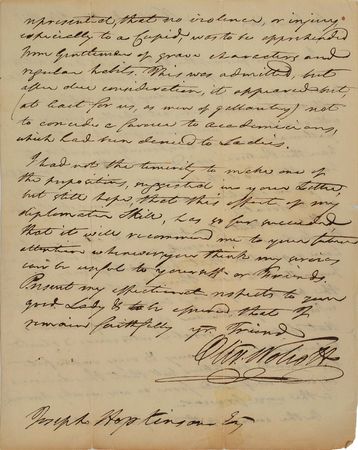 represented, that no violence, or injury
especially to a Cupid, was to be apprehended
from Gentlemen of grave characters and
regular habits. This was admitted, but
after due consideration, it appeared but
(at least for us, as men of gallantry) not
to concede a favour to Academicians,
which had been denied to Ladies.
I had not the temerity to make one of
the propositions, suggested in your Letter,
but still hope, that this effort of my
diplomatic Skill, has so far succeeded
that it will recommend me to your future
attention whenever you think my services
can be useful to yourself or Friends
Present my affectionate respects to your
good Lady & be assured that I
remain faithfully yr. Friend
Oliv. Wolcott
Joseph Hopkinson Esq